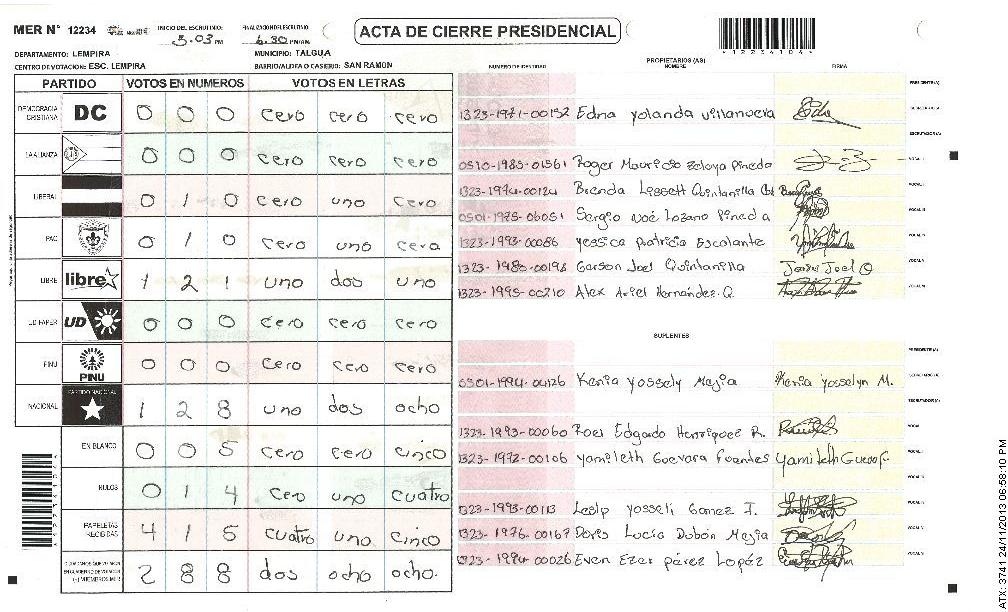 MER N° 12234
INICIO DEL ESCRUTINIO: 5.03 PM
FINALIZACION ESCRUTINIO: 6.30 PM/AM
ACTA DE CIERRE PRESIDENCIAL
12234104
DEPARTAMENTO: LEMPIRA
MUNICIPIO: TALGUA
CENTRO DE VOTACION: ESC. LEMPIRA
BARRIO/ALDEA O CASERIO: SAN RAMON
PARTIDO VOTOS EN NUMEROS VOTOS EN LETRAS
DEMOCRACIA CRISTIANA DC 0 0 0 cero cero cero
LA ALIANZA 0 0 0 cero cero cero
LIBERAL 0 1 0 cero uno cero
PAC 0 1 0 cero uno cero
LIBRE libre 1 2 1 uno dos uno
UD FAPER UD 0 0 0 cero cero cero
PINU PINU 0 0 0 cero cero cero
NACIONAL PARTIDO NACIONAL 1 2 8 uno dos ocho
EN BLANCO 0 0 5 cero cero cinco
NULOS 0 1 4 cero uno cuatro
PAPELETAS RECIBIDAS 4 1 5 cuatro uno cinco
2 8 8 dos ocho ocho.
NUMERO DE IDENTIDAD
PROPIETARIOS (AS)
NOMBRE
FIRMA
PRESIDENTE(A)
1323-1971-00152 Edna yolanda villanueva
SECRETARIO(A)
ESCRUTADOR (A)
0510-1985-01561 Roger Mauricio Zelaya Pineda VOCAL I
1323-1974-00124 Brenda Lissett Quintanilla VOCAL II
0501-1975-06051 Sergio Noé Lozano Pineda VOCAL III
1323-1993-00086 yessica patricia Escalante VOCAL IV
1323-1985-00198 Gerson Joel Quintanilla VOCAL V
1323-1995-00210 Alex Ariel Hernández Q. VOCAL VI
SUPLENTES
PRESIDENTE (A)
0301-1994-00126 Kenia yossely Mejia Kenia yosselyn M. SECRETARIO(A)
ESCRUTADOR (A)
1323-1993-00060 Roel Edgardo Henriquez R. VOCAL I
1323-1972-00106 yamileth Guevara fuentes yamileth Guevara F. VOCAL II
1323-1993-00113 Leslp yosseli Gomez I.
1323-1976-00167 Doris Lucia Dubón Mejia VOCAL V
1323-1994-00026 Even Ezer pérez Lopéz VOCAL VI
ATX: 3741 24/11/2013 06:58:10 PM